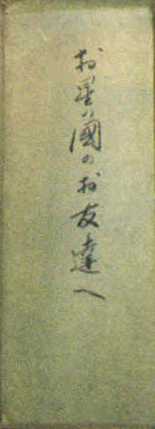 お星の國のお友達へ